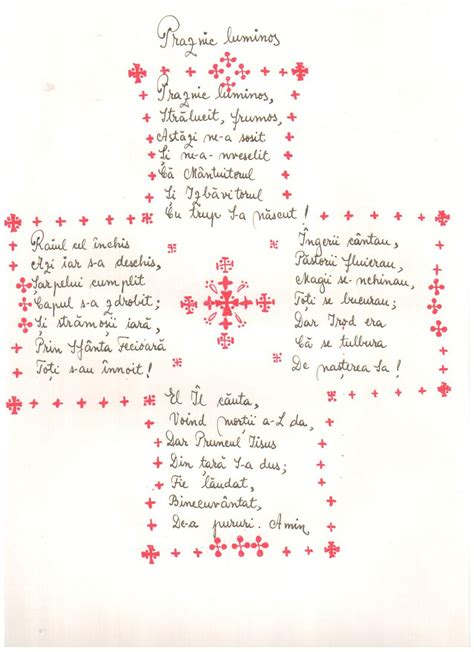 Praznic luminos
Praznic luminos,
Strălucit, frumos,
Astăzi ne-a sosit
Și ne-a-nveselit
Că Mântuitorul
Și Izbăvitorul
Cu trup S-a născut!
Raiul cel închis
Azi iar s-a deschis,
Șarpelui cumplit
Capul s-a zdrobit;
Și strămoșii iară,
Prin Sfânta Fecioară
Toți s-au înnoit!
Îngerii cântau,
Păstorii fluierau,
Magii se-nchinau,
Toți se bucurau;
Dar Irod era
Că se tulbura
De nașterea Sa!
El Îl căuta,
Voind morții a-L da,
Dar Pruncul Iisus
Din țară S-a dus;
Fie lăudat,
Binecuvântat,
De-a pururi. Amin